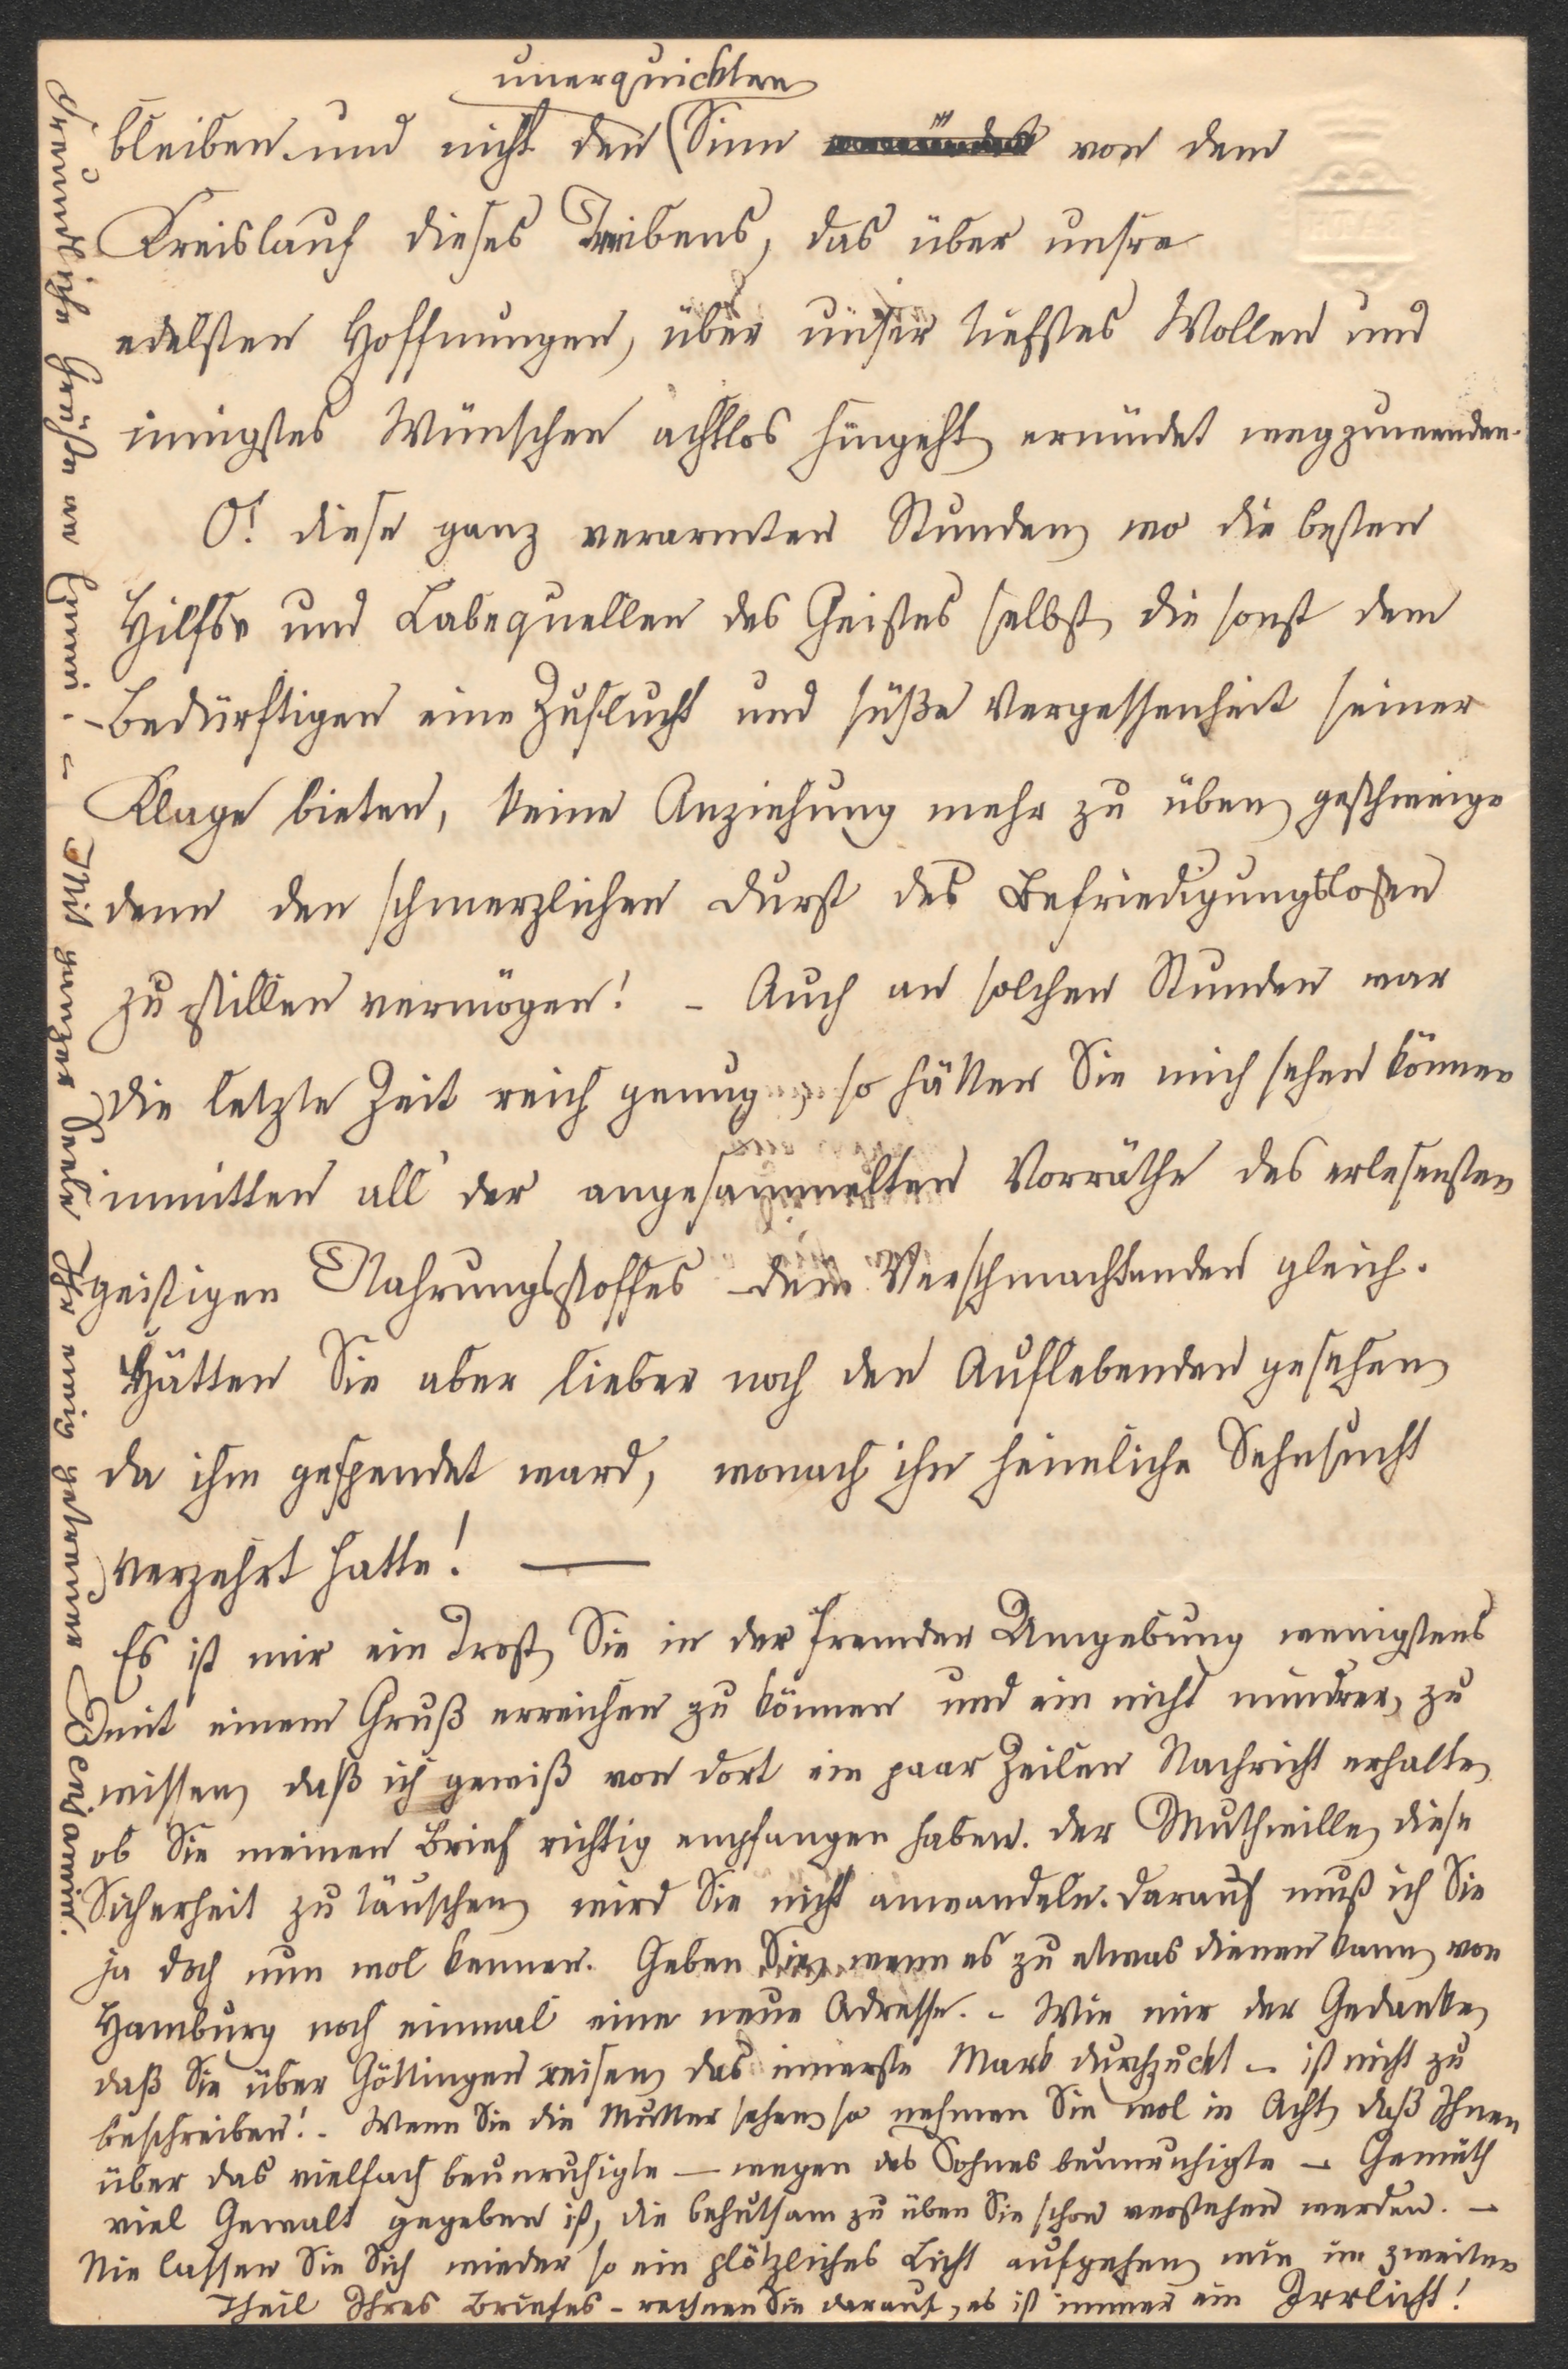 unerquickten
bleiben und nicht den Sinn von dem
Kreislauf dieses Treibens, das über unsre
edelsten Hoffnungen, über unser tiefstes Wollen und
innigstes Wünschen achtlos hingeht, ermüdet wegzuwenden.
O! diese ganz verarmten Stunden, wo die besten
Hilfs- und Labequellen des Geistes selbst, die sonst dem
Bedürftigen eine Zuflucht und süße Vergessenheit seiner
Klage bieten, keine Anziehung mehr zu üben, geschweige
denn den schmerzlichen Durst des Befriedigungslosen
zu stillen vermögen! - Auch an solchen Stunden war
die letzte Zeit reich genug, so hätten Sie mich sehen können
inmitten all' der angesammelten Vorräthe des erlesensten
geistigen Nahrungsstoffes dem Verschmachtenden gleich.
Hätten Sie aber lieber noch den Auflebenden gesehen,
da ihm gespendet ward, wonach ihn heimliche Sehnsucht
verzehrt hatte! —
Es ist mir ein Trost, Sie in der fremden Umgebung wenigstens
mit einem Gruß erreichen zu können und ein nicht mindrer, zu
wissen, daß ich gewiß von dort ein paar Zeilen Nachricht erhalte,
ob Sie meinen Brief richtig empfangen haben. Der Muthwille, diese
Sicherheit zu täuschen, wird Sie nicht anwandeln. Darauf muß ich Sie
ja doch nun wol kennen. Geben Sie, wenn es zu etwas dienen kann, von
Hamburg noch einmal eine neue Adresse. - Wie mir der Gedanke,
daß Sie über Göttingen reisen, das innerste Mark durchzuckt - ist nicht zu
beschreiben! - Wenn Sie die Mutter sehen, so nehmen Sie wol in Acht, daß Ihnen
über das vielfach beunruhigte — wegen des Sohnes beunruhigte - Gemüth
viel Gewalt gegeben ist, die behutsam zu üben Sie schon verstehen werden. -
Nie lassen Sie Sich wieder so ein plötzliches Licht aufgehen, wie im zweiten
Theil Ihres Briefes - rechnen Sie darauf, es ist immer ein Irrlicht!
Freundliche Grüße an Emmi. - Mit ganzer Seele Ihr ewig getreuer Benjamin.